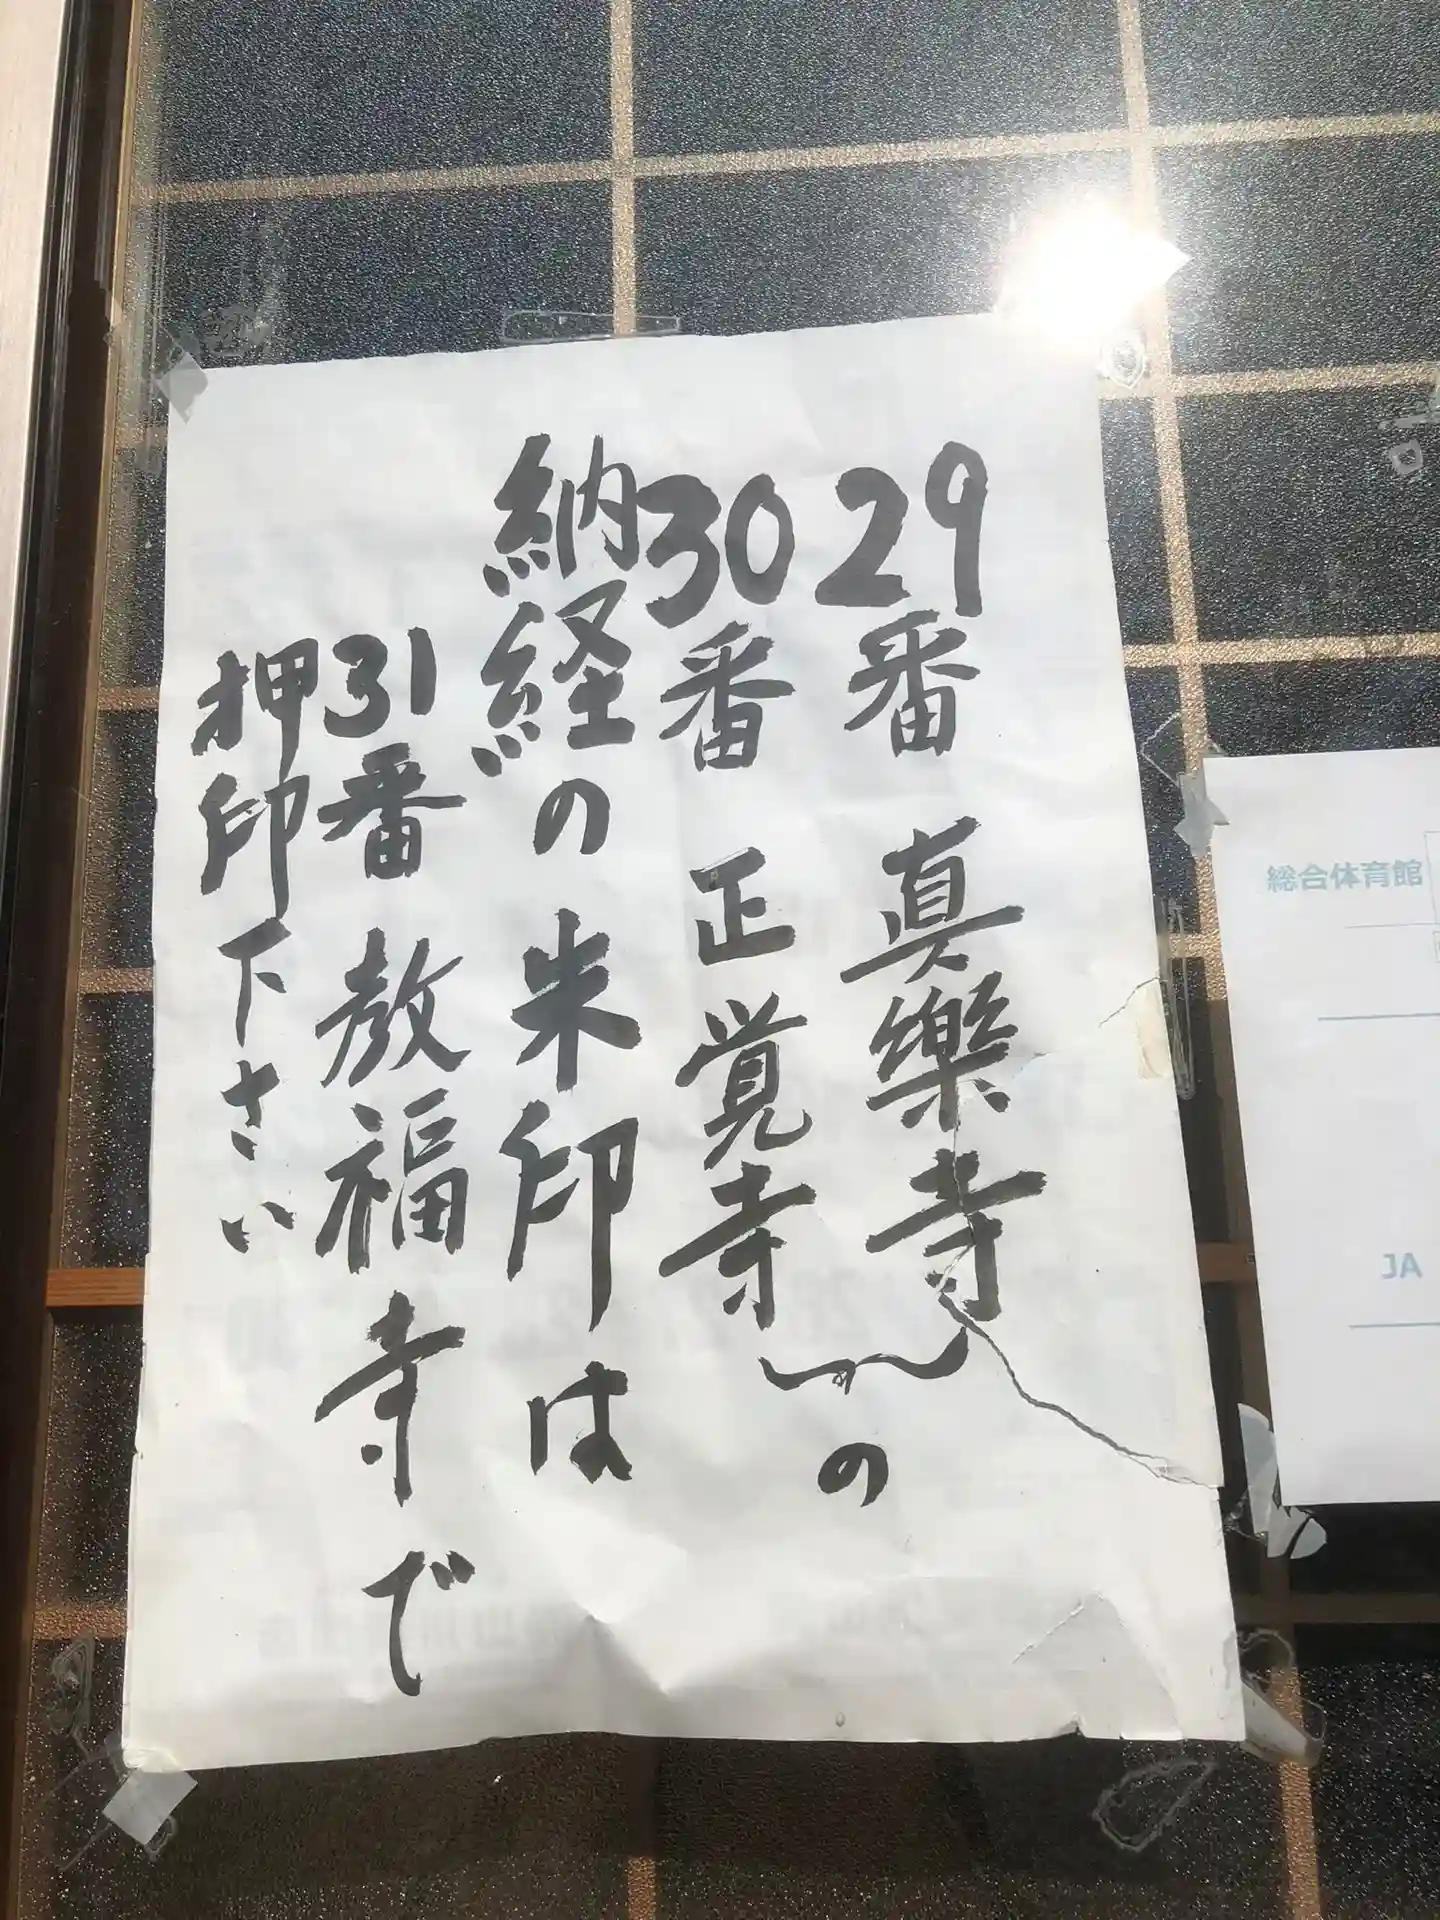 29番 真樂寺
30番 正覚寺
の
納経の朱印は
31番 教福寺で
押印下さい
総合体育館
JA